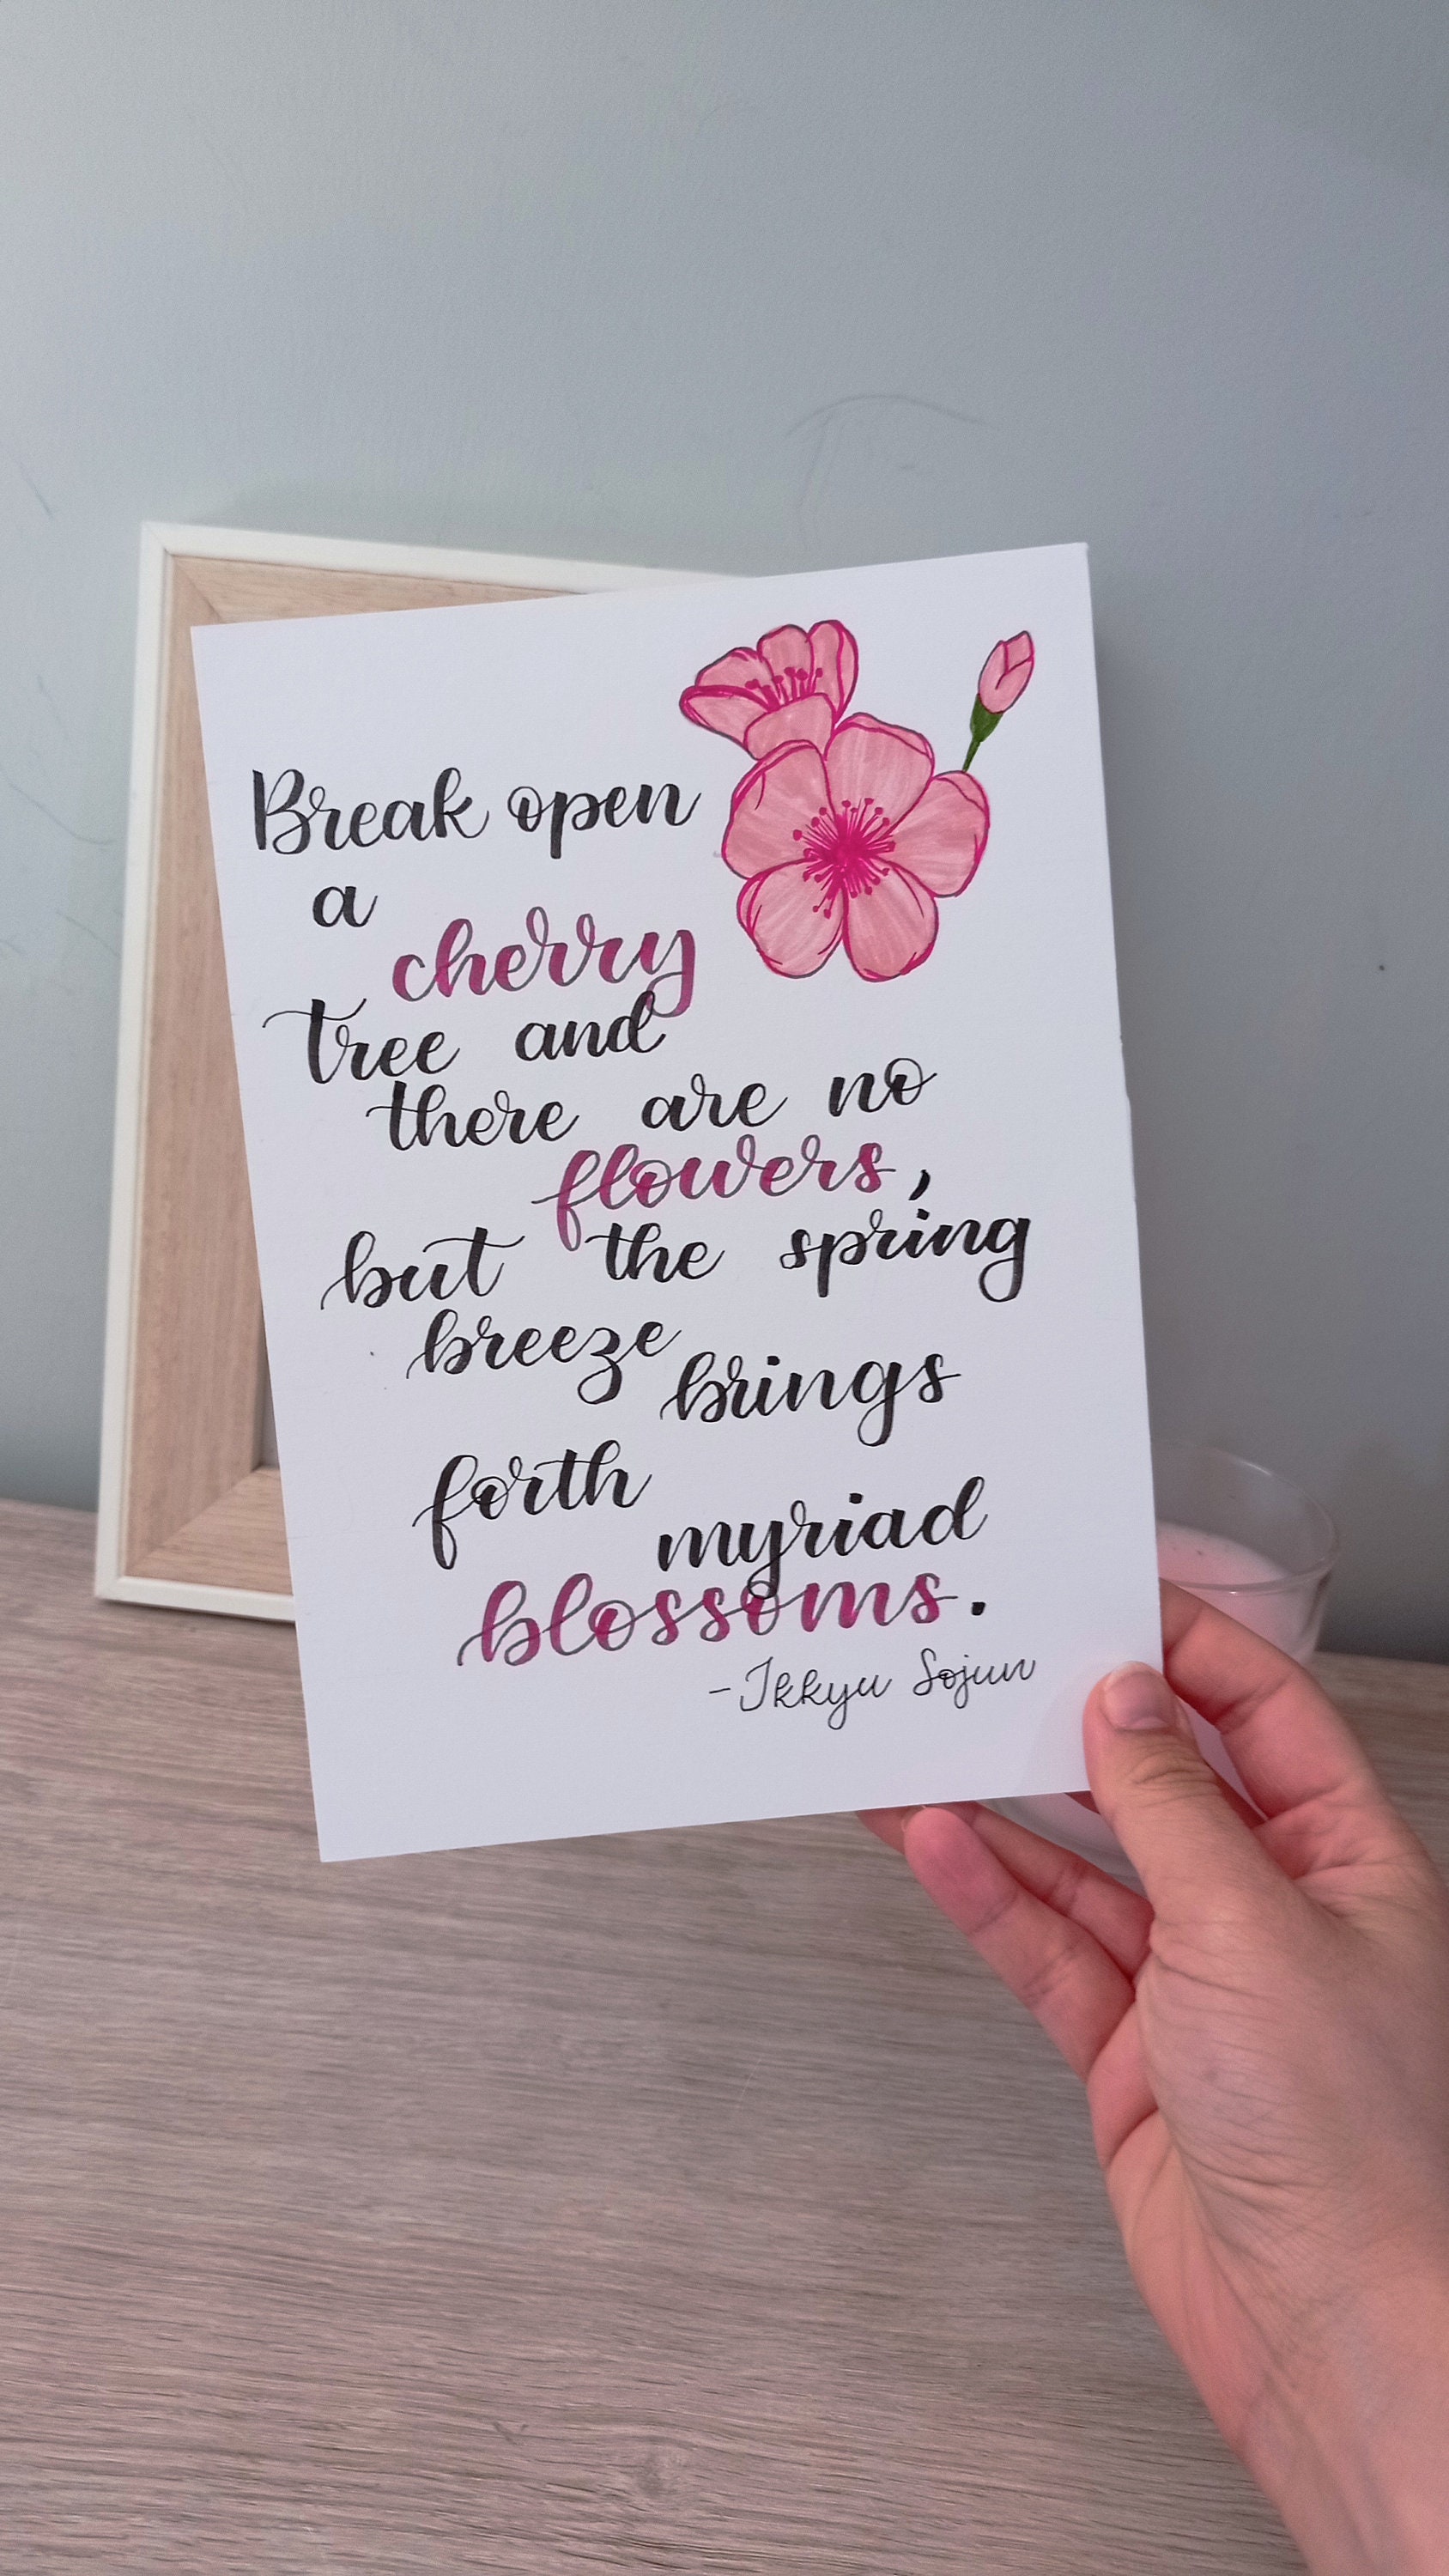 Break open
a
cherry
tree and
there are no
flowers,
but the spring
breeze
brings
forth
myriad
blossoms.
-Ikkyu Sojun